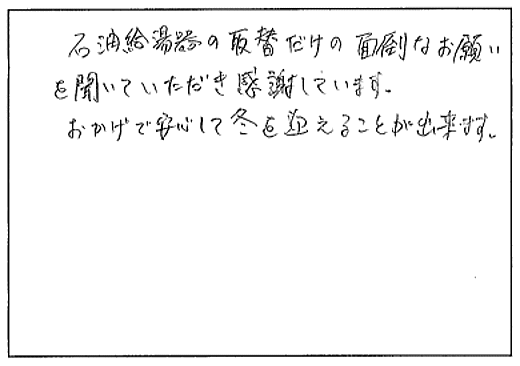 石油給湯器の取替だけの面倒なお願い
を聞いていただき感謝しています。
おかげで安心して冬を迎えることが出来ます。